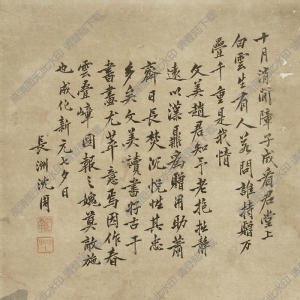 十月清閒陳子成看君堂上
白雲生有人若問誰持贈万
疊千重是我情
文美趙君知予老拖杜靜
遠以漢鼎屢贈用助蕭
齋日長焚沉悅性其忠
多矣文美讀書好古于
書畫尤萃意焉因作春
雲疊嶂圖報之媿莫敵施
也成化新元七夕日
長洲沈周